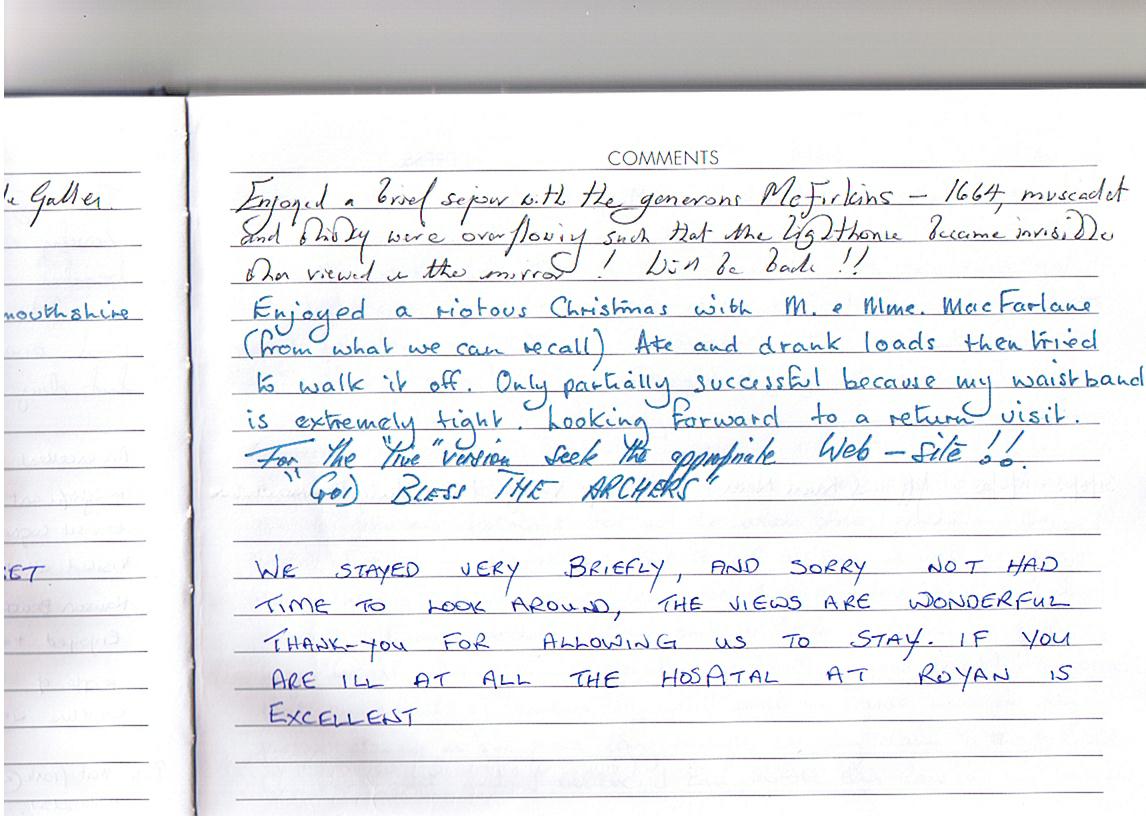 COMMENTS
Galler
Enjoyed a brief sejour with the generous McFirkins – 1664, muscadet
and whisky were overflowing such that the lighthouse became invisible
when viewed in the mirror! Will be back!!
mouthshire
Enjoyed a riotous Christmas with M. e Mme. MacFarlane
(from what we can recall) Ate and drank loads then tried
to walk it off. Only partially successful because my waistband
is extremely tight. Looking forward to a return visit.
For the "live" version seek the appropriate Web-site!!
"GOD BLESS THE ARCHERS"
ET
WE STAYED VERY BRIEFLY, AND SORRY NOT HAD
TIME TO LOOK AROUND, THE VIEWS ARE WONDERFUL
THANK-YOU FOR ALLOWING US TO STAY. IF YOU
ARE ILL AT ALL THE HOSPITAL AT ROYAN IS
EXCELLENT